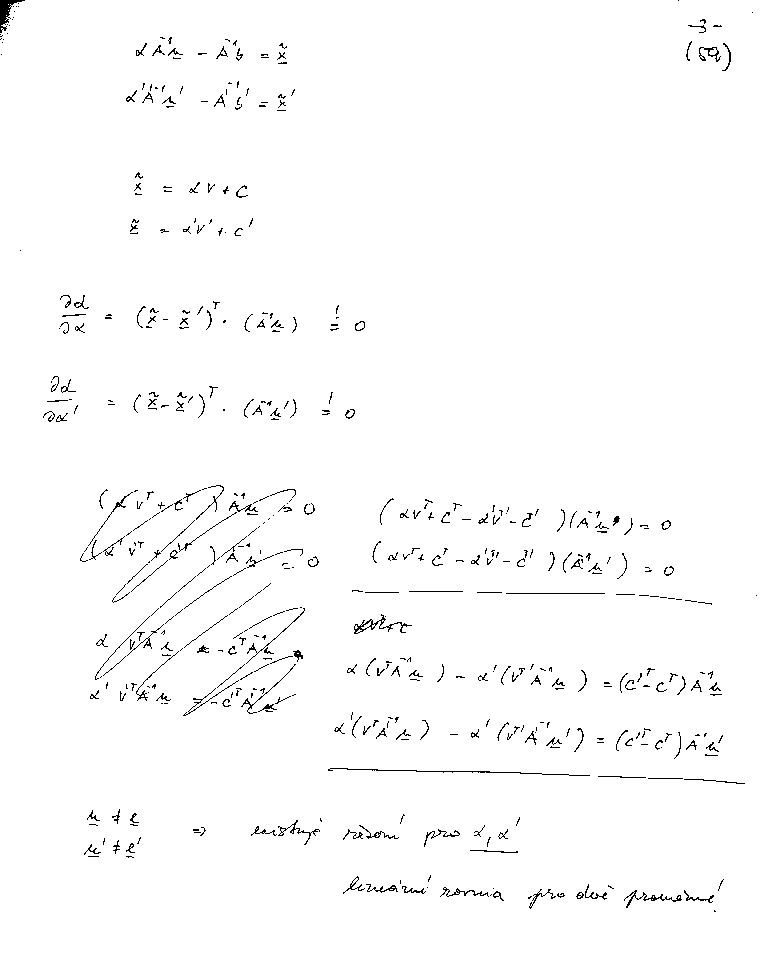 -3-
(59)
α A⁻¹u − A⁻¹b = x̃
α'A'⁻¹u' − A'⁻¹b' = x̃'
x̃ = αv + c
x̃ = α'v' + c'
∂d/∂α = (x̃ − x̃')ᵀ · (A⁻¹u) != 0
∂d/∂α' = (x̃ − x̃')ᵀ · (A⁻¹u') != 0
(αvᵀ + cᵀ ) A⁻¹u = 0
(α'v'ᵀ + c'ᵀ ) A⁻¹u' = 0
α vᵀA⁻¹u = −cᵀA⁻¹u
α' vᵀA⁻¹u = −c'ᵀA⁻¹u'
(αvᵀ + cᵀ − α'v' − c' )(A⁻¹u) = 0
(αvᵀ + cᵀ − α'v' − c' )(A⁻¹u') = 0
α(vᵀA⁻¹u ) − α'(v'ᵀA⁻¹u ) = (c'ᵀ − cᵀ) A⁻¹u
α'(vᵀA⁻¹u) − α'(v'ᵀA⁻¹u') = (c'ᵀ − cᵀ) A⁻¹u'
u ≠ e
u' ≠ e'
⇒ existuje řešení pro α, α'
lineární rovnia pro dvě proměnné!